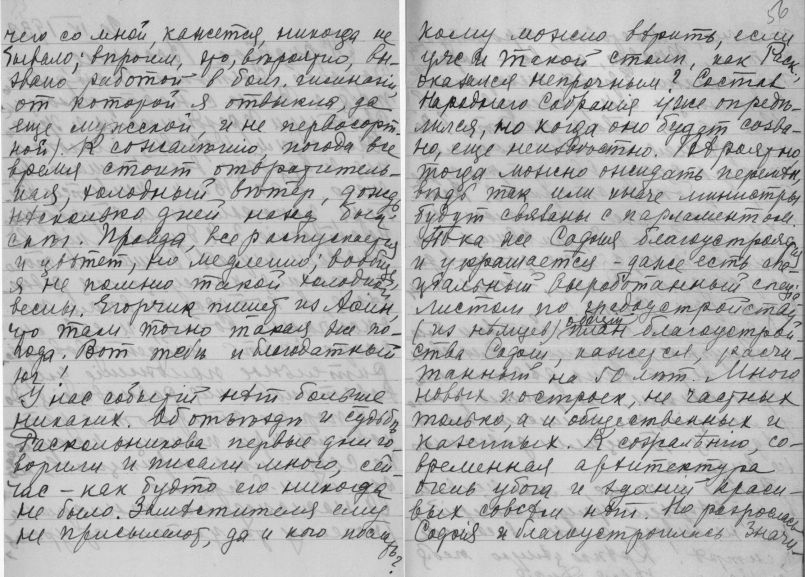 чего со мной, кажется, никогда не
бывало; впрочем, это, вѣроятно, вы-
звано работой в болг. гимназіи,
от которой я отвыкла, да
еще мужской, и не первосорт-
ной). К сожалѣнію, погода все
время стоит отвратитель-
ная, холодный вѣтер, дождь,
нѣсколько дней назад был
снѣг. Правда, все распускается
и цвѣтет, но медленно; вообще
я не помню такой холодной
весны. Егорчик пишет из Афин,
что там точно такая же по-
года. Вот тебѣ и благодатный
юг!
У нас событій нѣт больше
никаких. Об отъѣздѣ и судьбѣ
Раскольникова первые дни го-
ворили и писали много, сей-
час – как будто его никогда
не было. Замѣстителя ему
не присылают, да и кого послать?
56
кому можно вѣрить, если
уж и такой столп, как Раск.,
оказался непрочным? Состав
Народнаго Собранія уже опредѣ-
лился, но когда оно будет созва-
но, еще неизвѣстно. Вѣроятно
тогда можно ожидать перемѣн,
ведь так или иначе министры
будут связаны с парламентом.
Пока же Софія благоустрояется
и украшается – даже есть
выработанный спеціа-
листом по градоустройству
(из нѣмцев) план благоустрой-
ства Софіи, кажется, расчи-
танный на 50 лѣт. Много
новых построек, не частных
только, а и общественных и
казенных. К сожалѣнію, со-
временная архитектура
очень убога и зданій краси-
вых совсѣм нѣт. Но разрослась
Софія и благоустроилась значи-